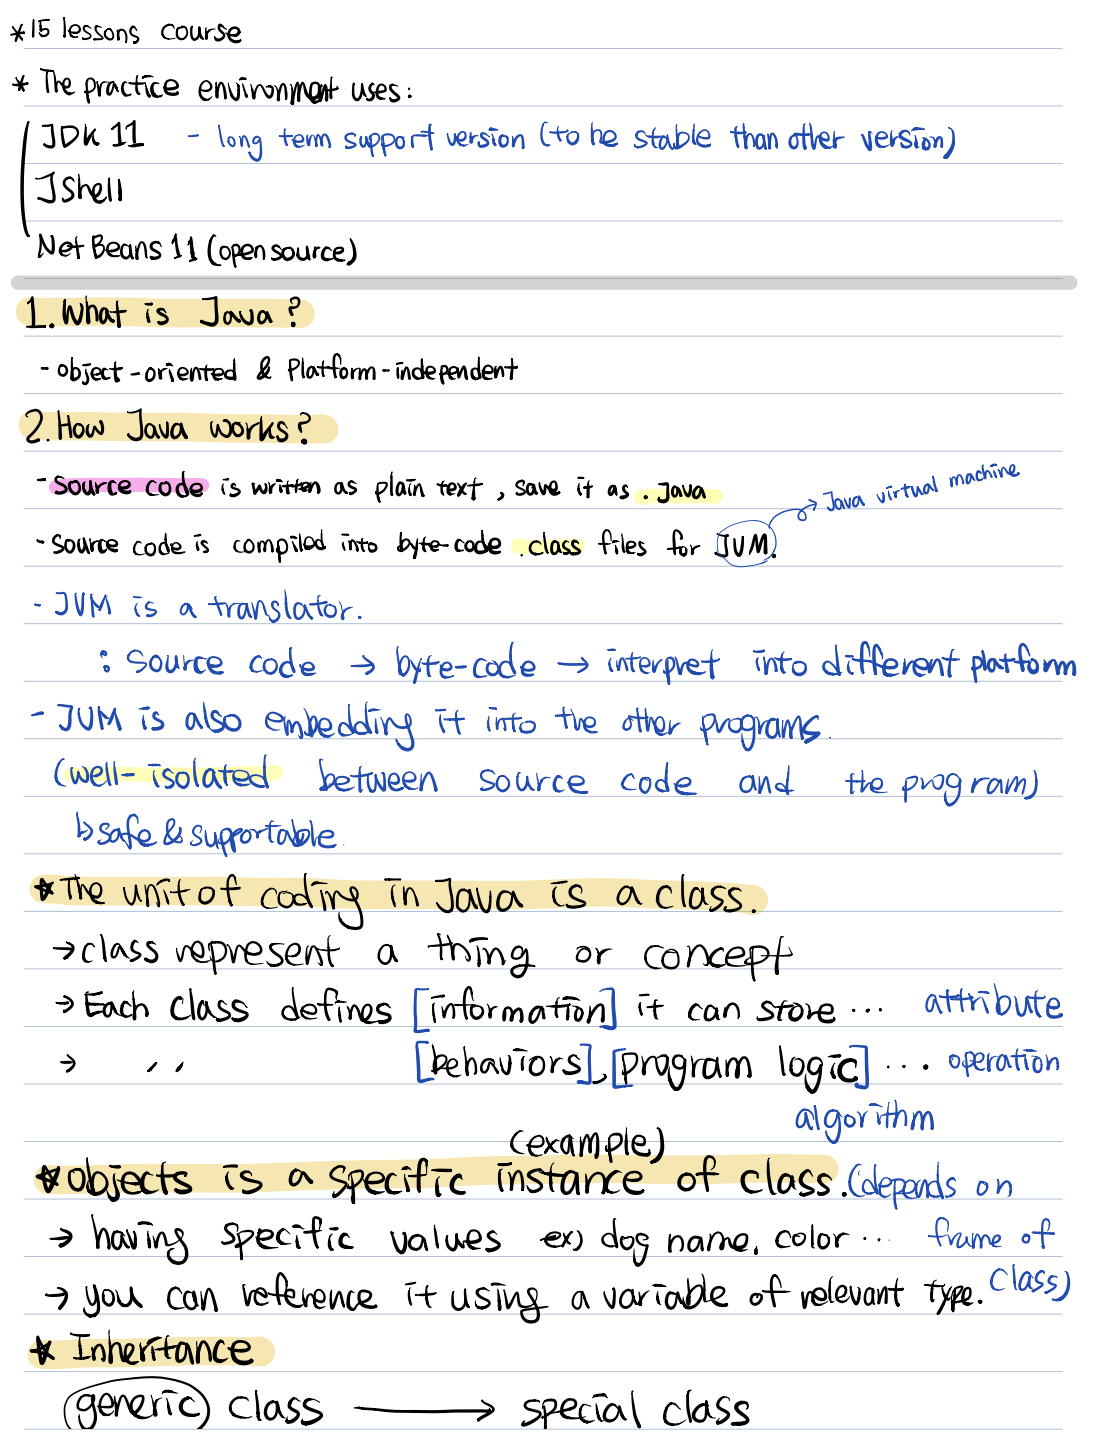 * 15 lessons course
* The practice environment uses:
JDK 11 - long term support version (to be stable than other version)
JShell
Net Beans 11 (open source)
1. What is Java?
- object-oriented & Platform-independent
2. How Java works?
- Source code is written as plain text, save it as .java
→ Java virtual machine
- Source code is compiled into byte-code .class files for JVM.
- JVM is a translator.
: Source code → byte-code → interpret into different platform
- JVM is also embedding it into the other programs.
(well-isolated between source code and the program)
↳ safe & supportable.
* The unit of coding in Java is a class.
→ class represent a thing or concept
→ Each class defines [information] it can store ... attribute
→ ,, [behaviors], [program logic] ... operation
algorithm
(example)
* Objects is a specific instance of class. (depends on
→ having specific values ex) dog name, color ... frame of
→ you can reference it using a variable of relevant type. class)
* Inheritance
generic class → special class